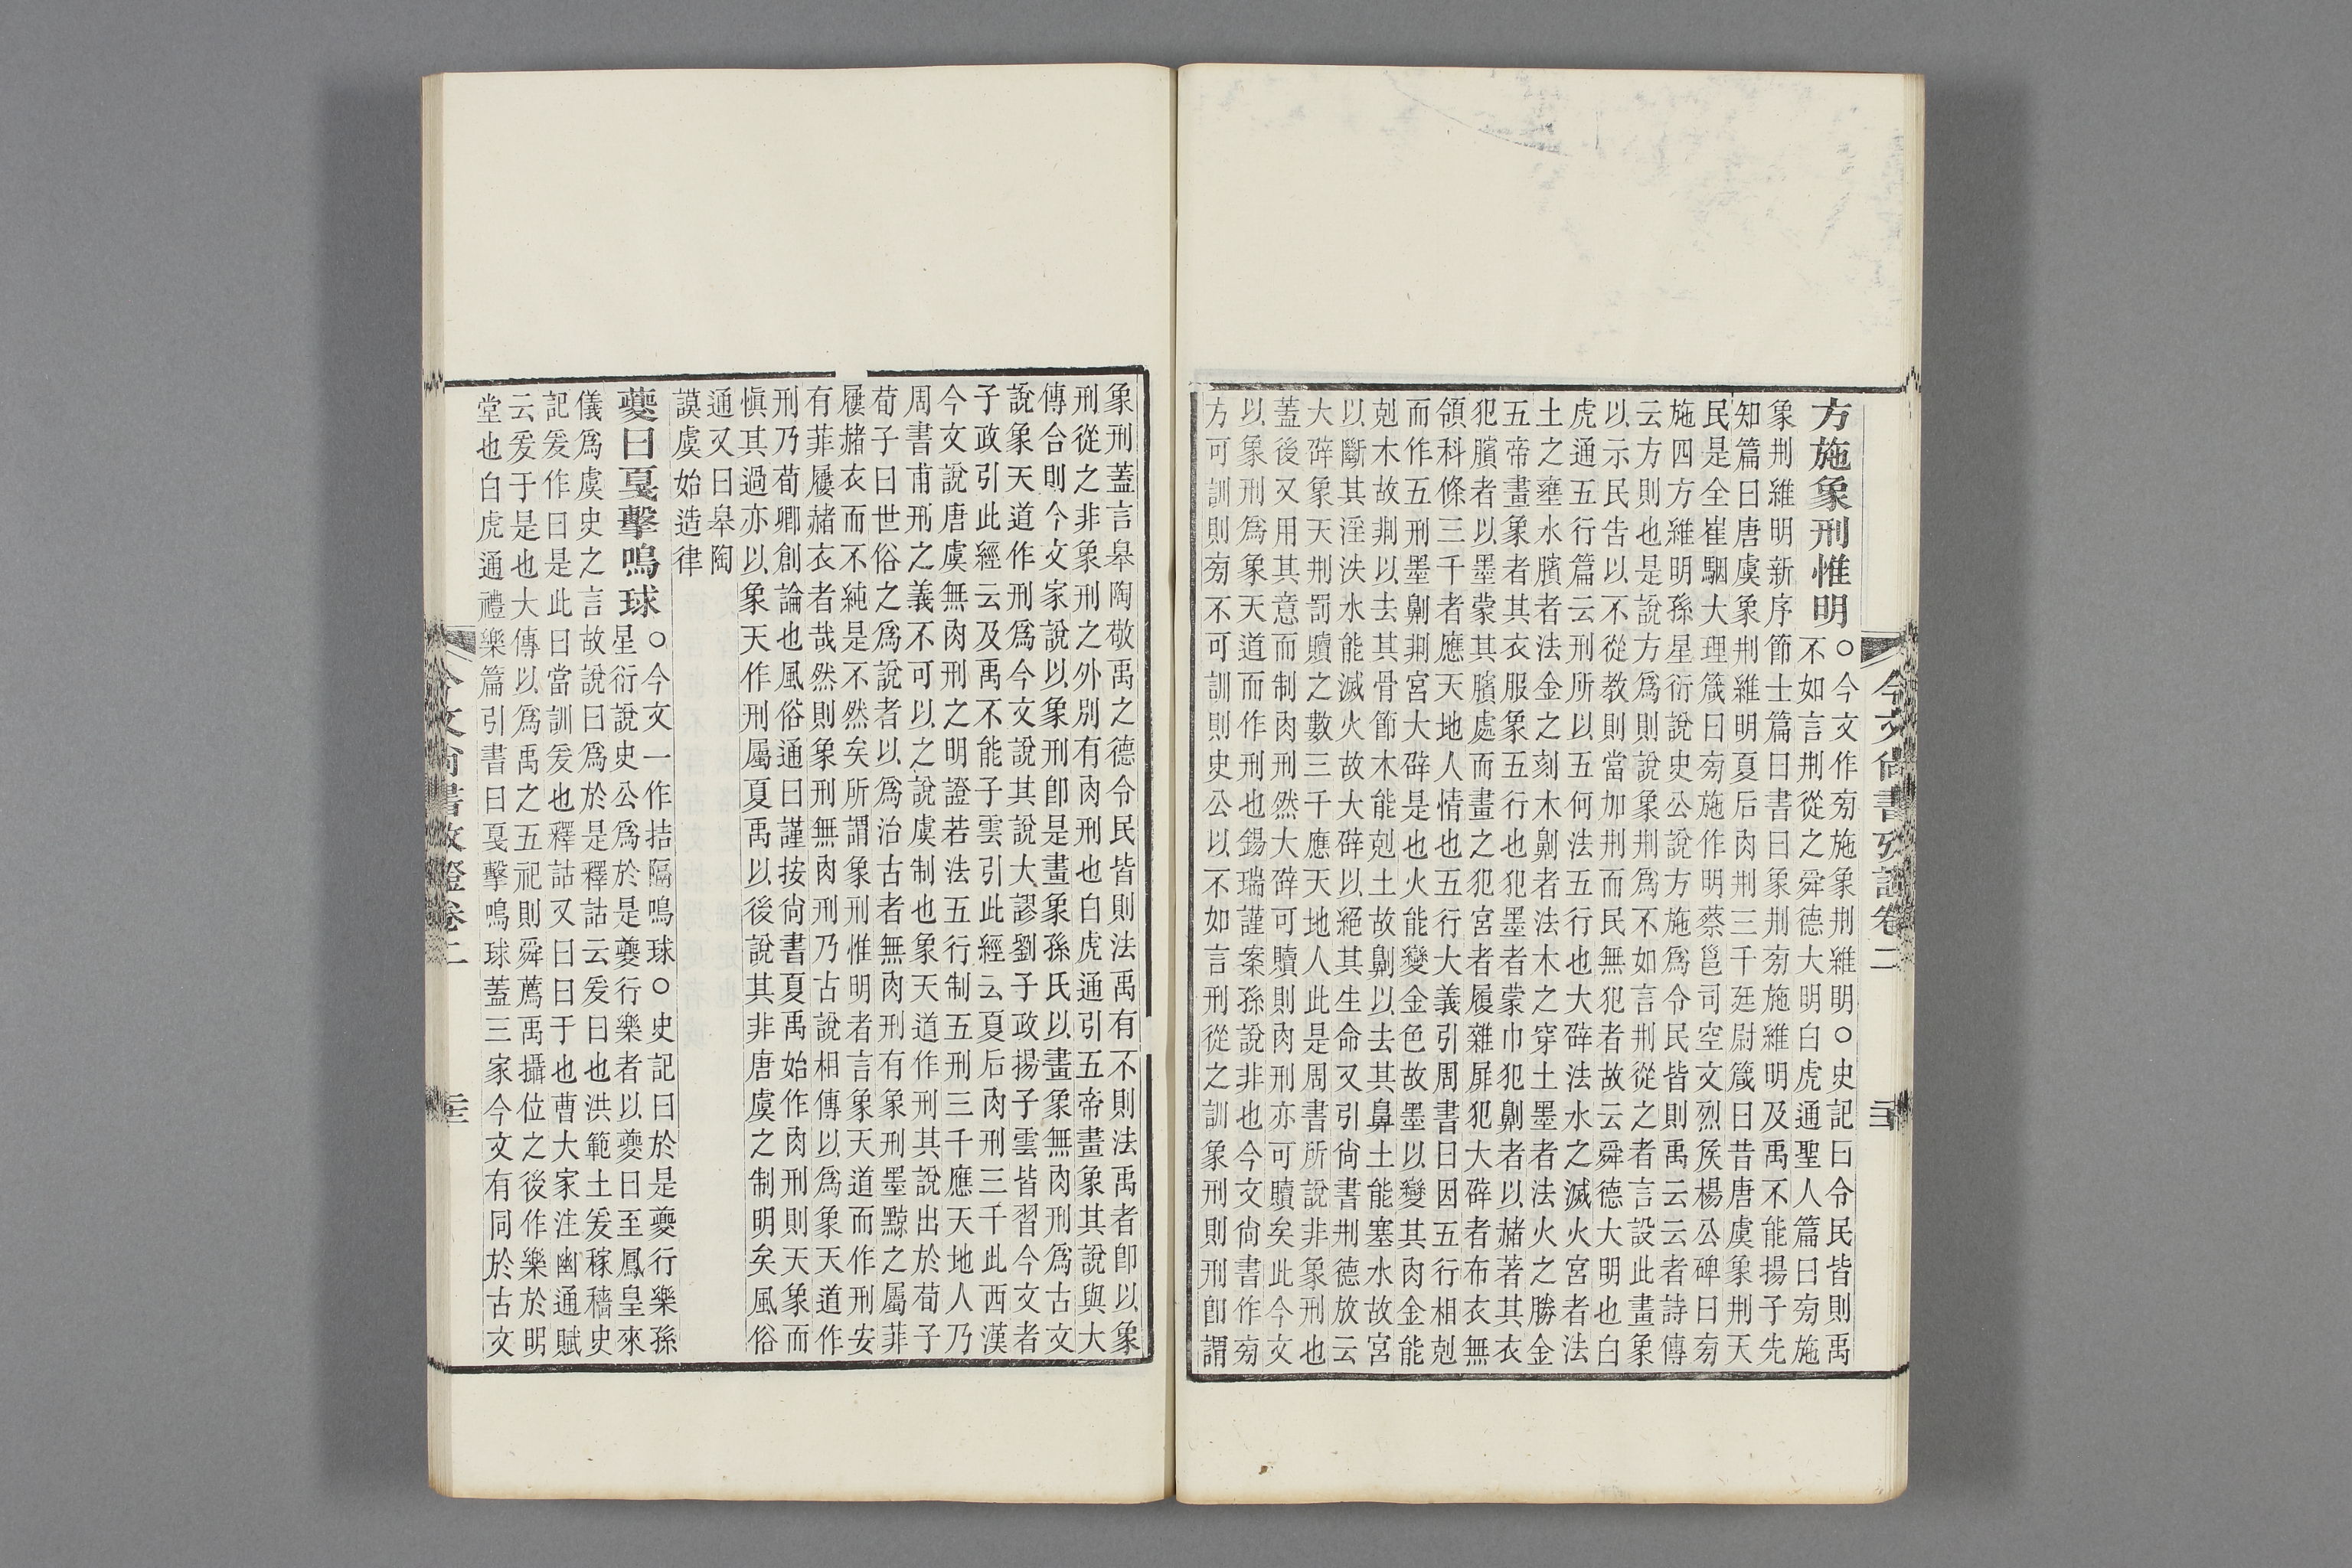 今文尚書攷證卷二
方施象刑惟明○今文作菊施象荆維明○史記曰令民皆則禹
不如言荆從之舜德大明白虎通聖人篇曰菊施
象荆維明新序節士篇曰書曰象荆菊施維明及禹不能揚子先
知篇曰唐虞象荆維明夏后肉荆三千廷尉箴曰昔唐虞象荆天
民是全崔駰大理箴曰菊施作明蔡邕司空文烈矦楊公碑曰菊
施四方維明孫星衍說史公說方施爲令民皆則禹云云者詩傳
云方則也是說方爲則說象荆爲不如言荆從之者言設此畫象
以示民告以不從教則當加荆而民無犯者故云舜德大明也白
虎通五行篇云刑所以五何法五行也大辟法水之滅火宮者法
土之壅水臏者法金之刻木劓者法木之穿土墨者法火之勝金
五帝畫象者其衣服象五行也犯墨者蒙巾犯劓者以赭著其衣
犯臏者以墨蒙其臏處而畫之犯宮者履雜屝犯大辟者布衣無
領科條三千者應天地人情也五行大義引周書曰因五行相剋
而作五刑墨劓荆宮大辟是也火能變金色故墨以變其肉金能
剋木故荆以去其骨節木能剋土故劓以去其鼻土能塞水故宮
以斷其淫泆水能滅火故大辟以絕其生命又引尙書荆德放云
大辟象天荆罰贖之數三千應天地人此是周書所說非象刑也
蓋後又用其意而制肉刑然大辟可贖則肉刑亦可贖矣此今文
以象刑爲象天道而作刑也錫瑞謹案孫說非也今文尙書作菊
方可訓則菊不可訓則史公以不如言刑從之訓象刑則刑卽謂
象刑蓋言皋陶敬禹之德令民皆則法禹有不則法禹者卽以象
刑從之非象刑之外別有肉刑也白虎通引五帝畫象其說與大
傳合則今文家說以象刑卽是畫象孫氏以畫象無肉刑爲古文
說象天道作刑爲今文說其說大謬劉子政揚子雲皆習今文者
子政引此經云及禹不能子雲引此經云夏后肉刑三千此西漢
今文說唐虞無肉刑之明證若法五行制五刑三千應天地人乃
周書甫刑之義不可以之說虞制也象天道作刑其說出於荀子
荀子曰世俗之爲說者以爲治古者無肉刑有象刑墨黥之屬菲
屨赭衣而不純是不然矣所謂象刑惟明者言象天道而作刑安
有菲屨赭衣者哉然則象刑無肉刑乃古說相傳以爲象天道作
刑乃荀卿創論也風俗通曰謹按尙書夏禹始作肉刑則天象而
愼其過亦以象天作刑屬夏禹以後說其非唐虞之制明矣風俗
通又曰皋陶
謨虞始造律
夔曰戛擊鳴球○今文一作拮隔鳴球○史記曰於是夔行樂孫
星衍說史公爲於是夔行樂者以夔曰至鳳皇來
儀爲虞史之言故說曰爲於是釋詁云爰曰也洪範土爰稼穡史
記爰作曰是此曰當訓爰也釋詁又曰曰于也曹大家注幽通賦
云爰于是也大傳以爲禹之五祀則舜薦禹攝位之後作樂於明
堂也白虎通禮樂篇引書曰戛擊鳴球蓋三家今文有同於古文
今文尚書攷證卷二